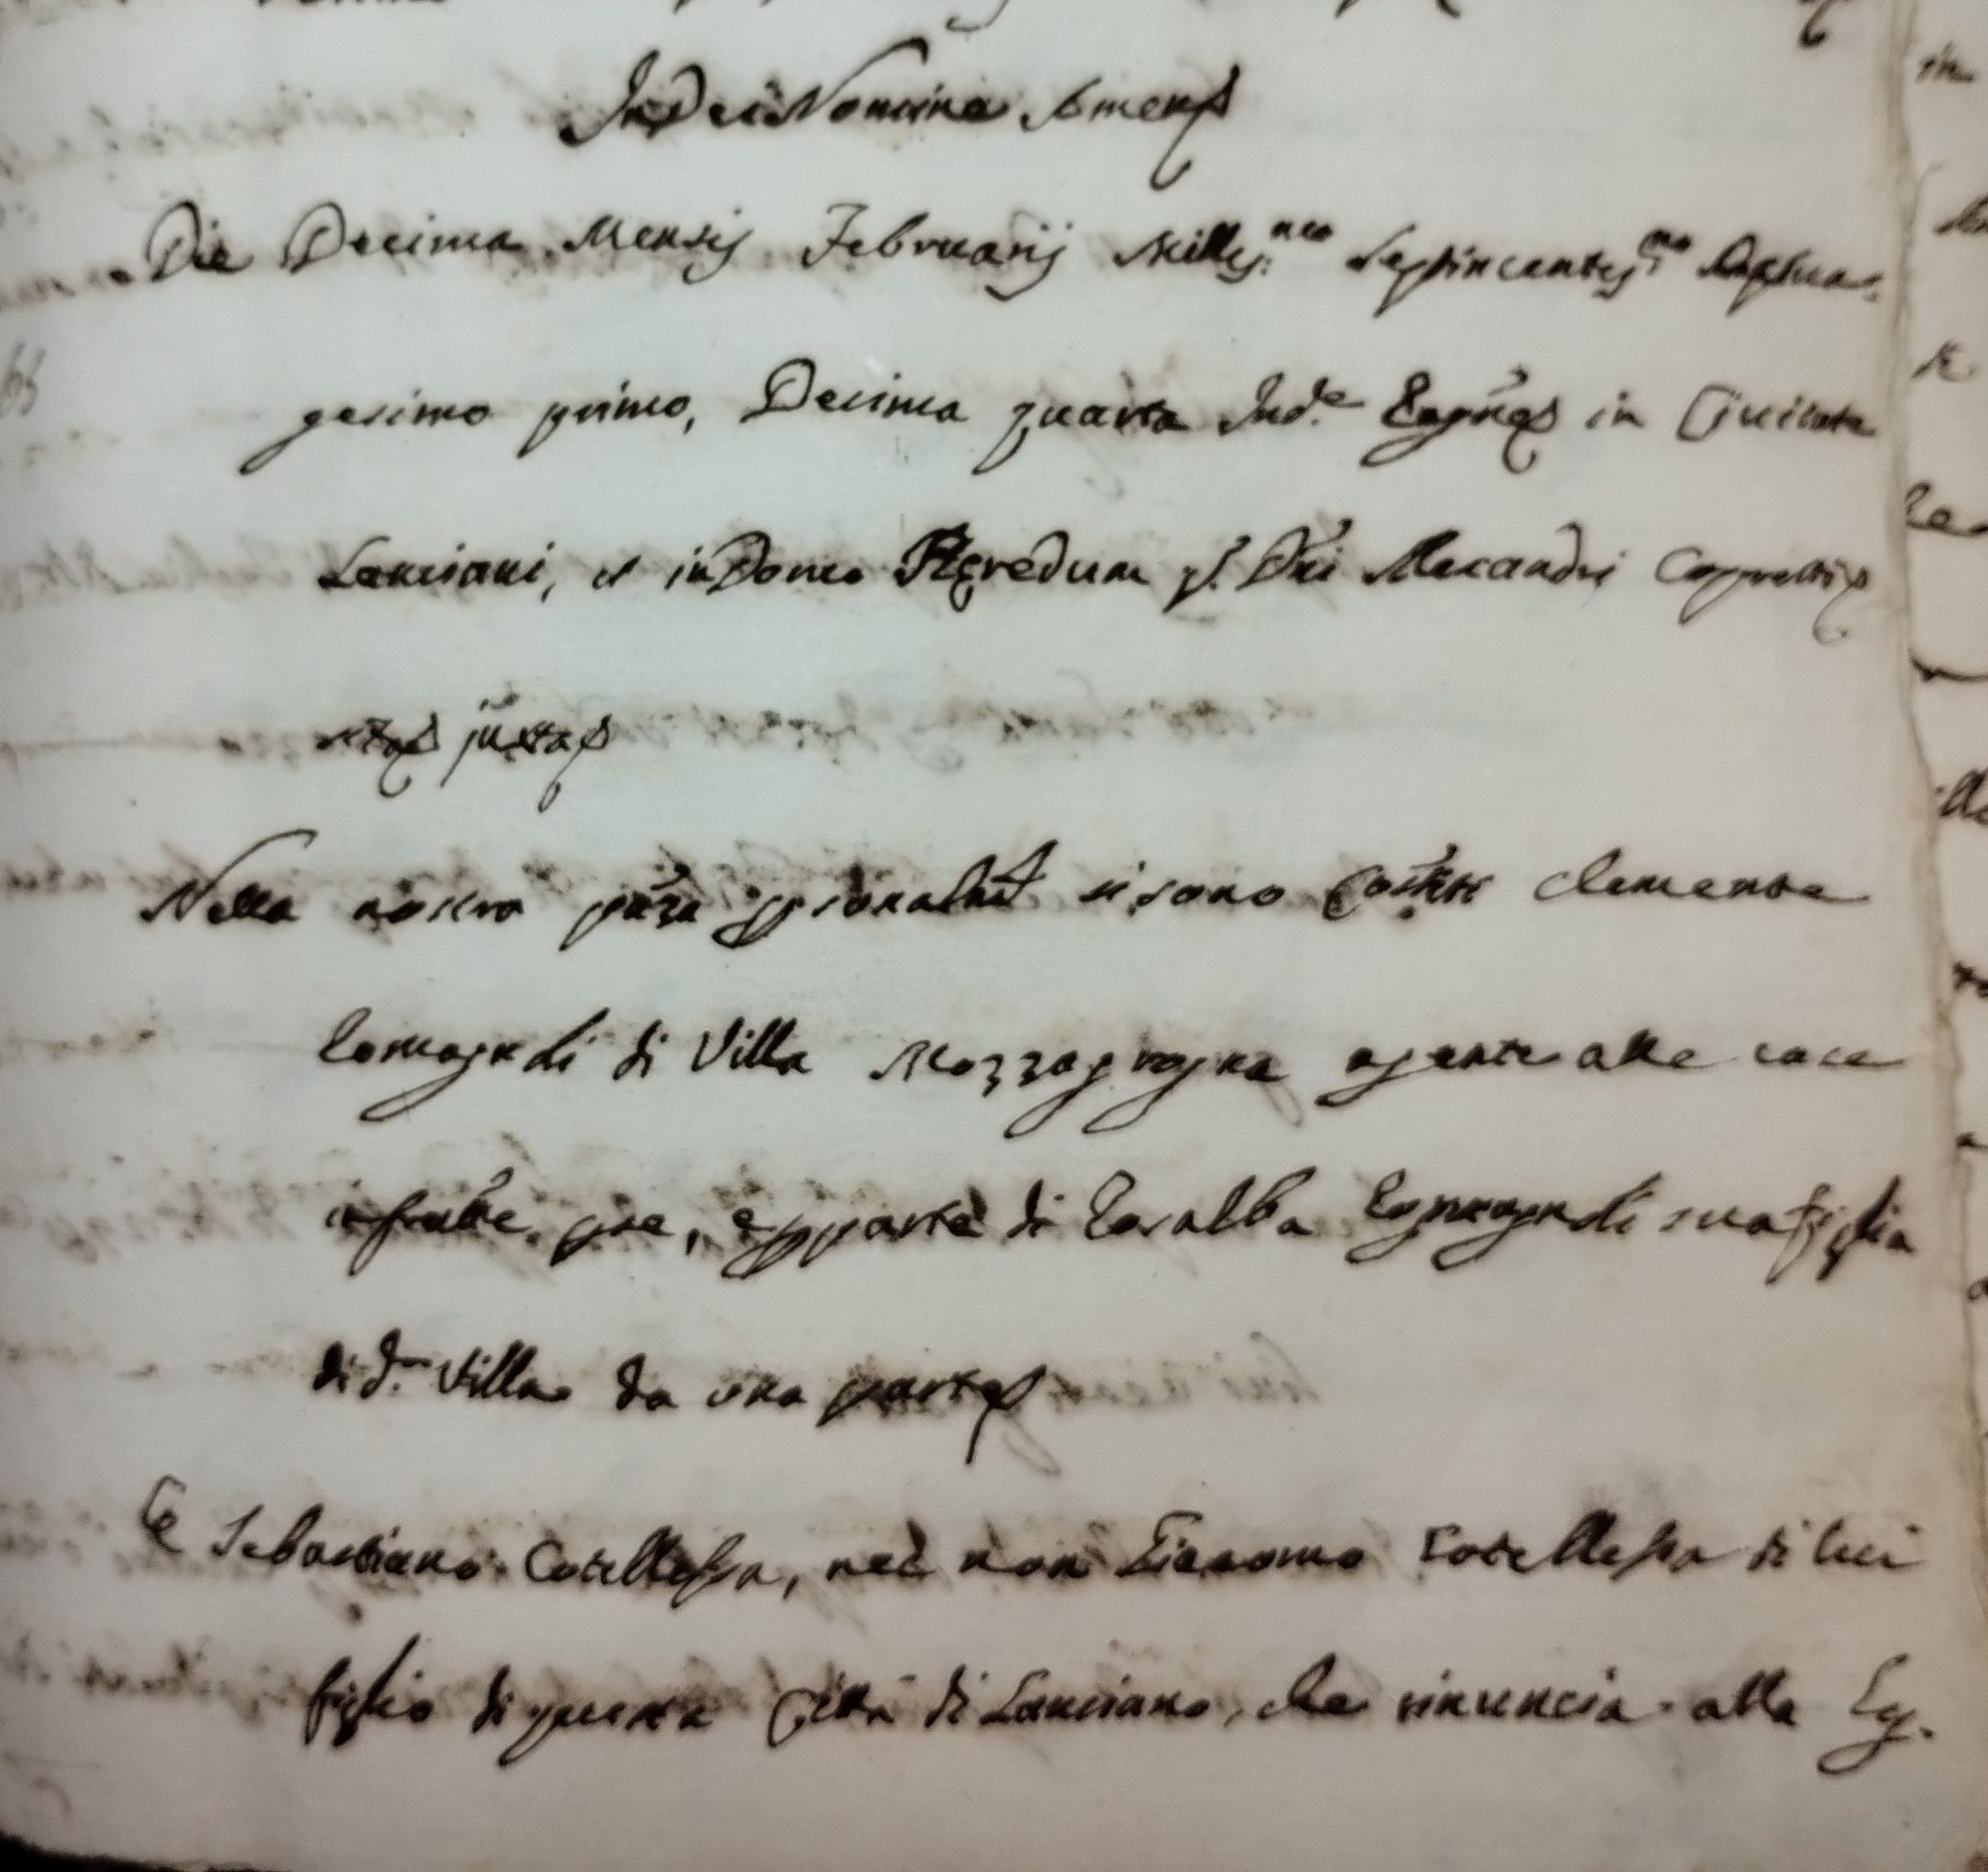 In Dei Nomine Amen
Die Decima Mensis Februarij Milles.mo Septincentes.mo Septua-
gesimo primo, Decima quarta Ind.e in Civitate
Lanciani, et in Domo Heredum q. Dni Alexandri Coppelli
juxta
Nella nostra pnza psonalmt si sono Costti Clemente
Romagnoli di Villa Mozzagrogna agente alle cose
infratte p se, e p parte di Rosalba Romagnoli sua figlia
di d.a Villa da una parte
E Sebastiano Cotellessa, nec non Giacomo Cotellessa di lui
figlio di questa Città di Lanciano, che rinuncia alla